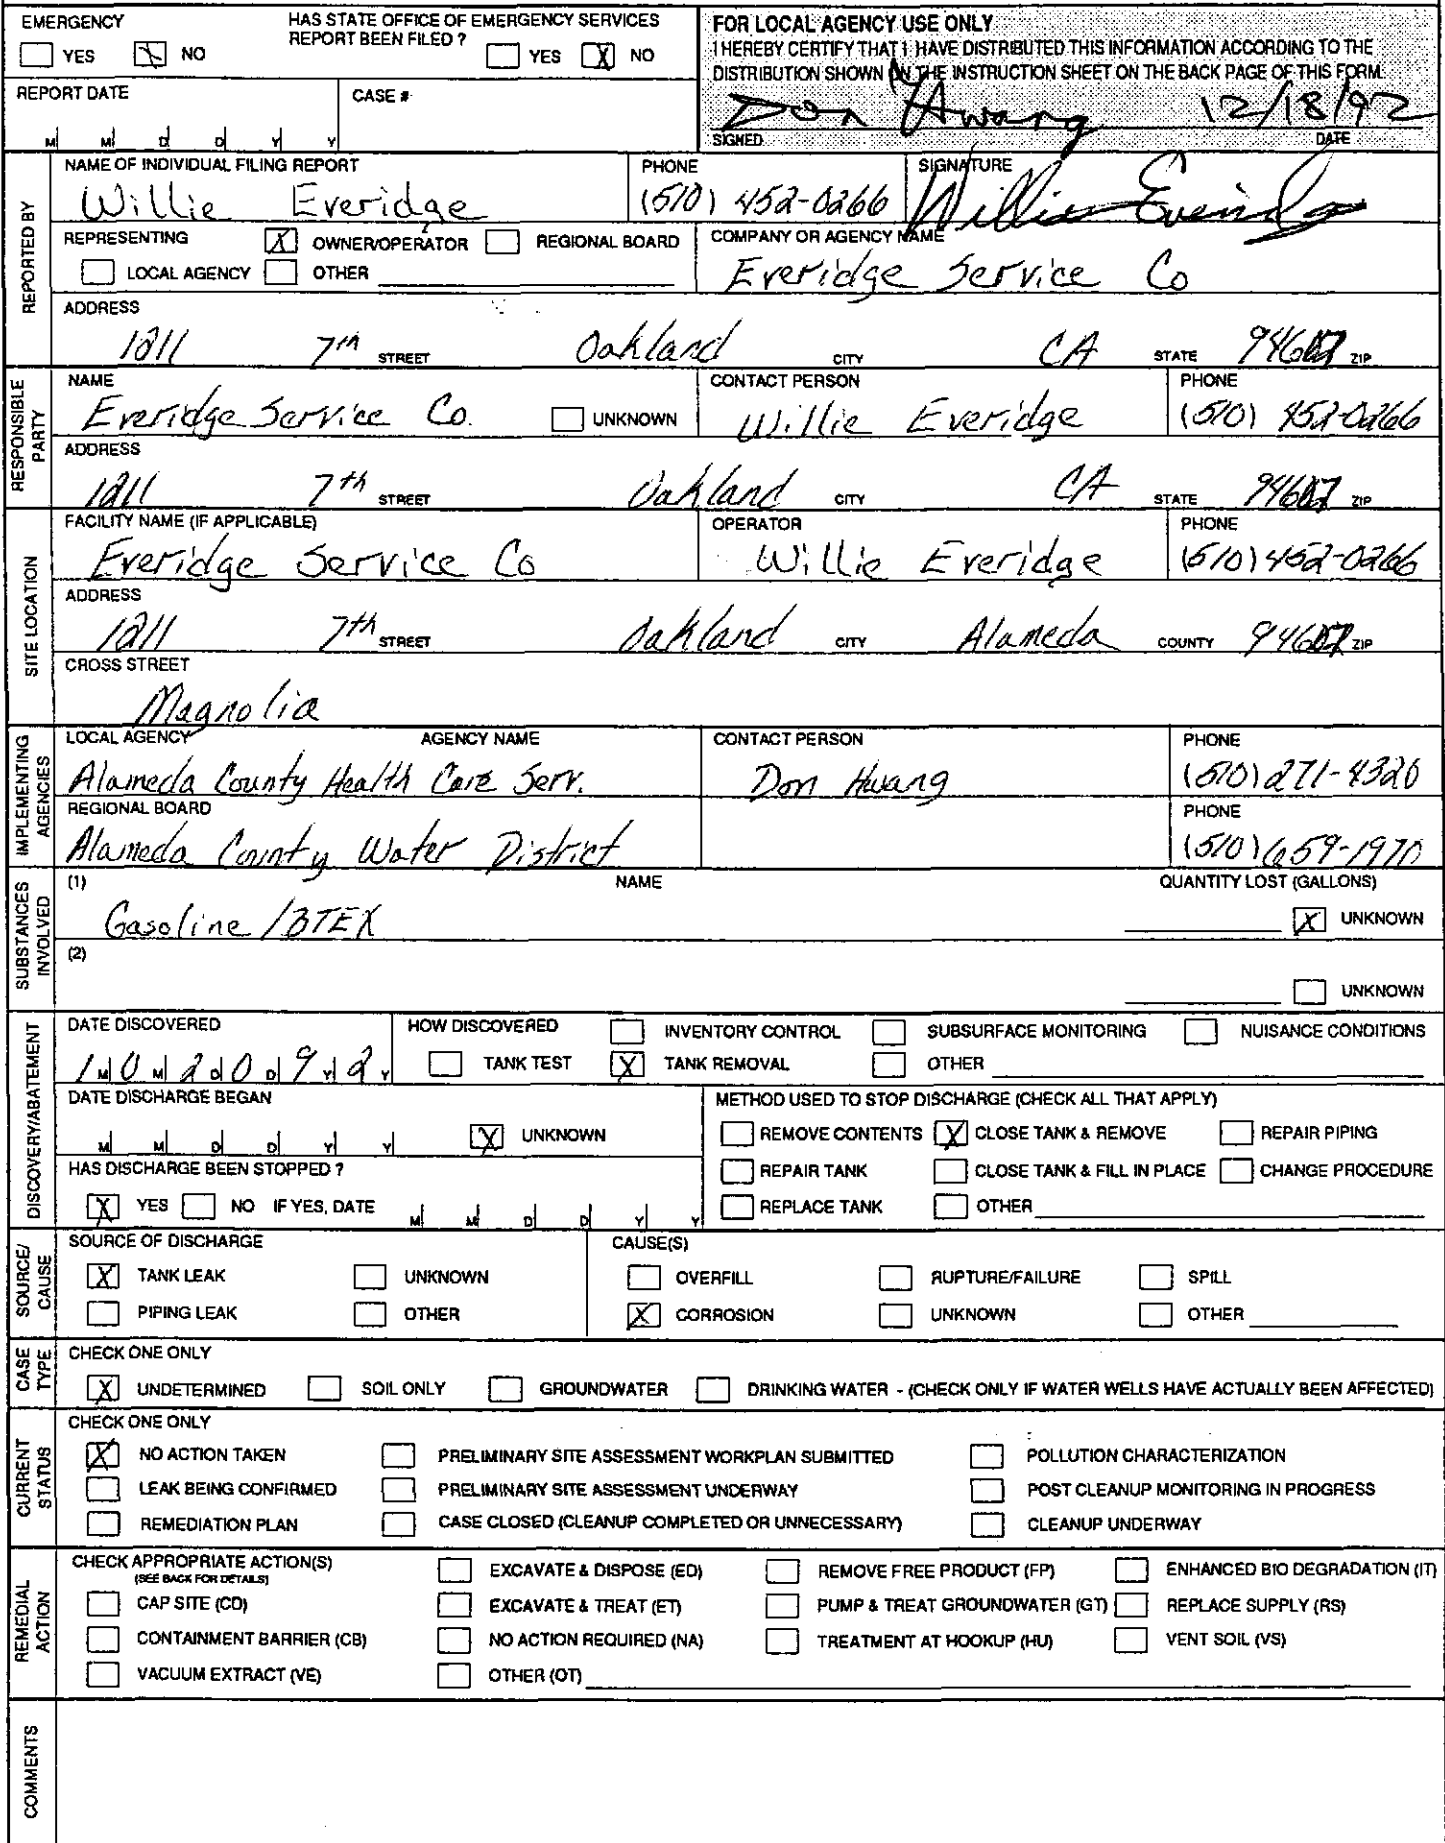 EMERGENCY
YES NO
HAS STATE OFFICE OF EMERGENCY SERVICES
REPORT BEEN FILED ? YES X NO
FOR LOCAL AGENCY USE ONLY
I HEREBY CERTIFY THAT I HAVE DISTRIBUTED THIS INFORMATION ACCORDING TO THE
DISTRIBUTION SHOWN ON THE INSTRUCTION SHEET ON THE BACK PAGE OF THIS FORM.
Don Hwang 12/18/92
SIGNED DATE
REPORT DATE
M M D D Y Y
CASE #
REPORTED BY
NAME OF INDIVIDUAL FILING REPORT
Willie Everidge
PHONE
(510) 452-0266
SIGNATURE
Willie Everidge
REPRESENTING X OWNER/OPERATOR REGIONAL BOARD
LOCAL AGENCY OTHER
COMPANY OR AGENCY NAME
Everidge Service Co
ADDRESS
1211 7th STREET Oakland CITY CA STATE 94607 ZIP
RESPONSIBLE PARTY
NAME
Everidge Service Co. UNKNOWN
CONTACT PERSON
Willie Everidge
PHONE
(510) 452-0266
ADDRESS
1211 7th STREET Oakland CITY CA STATE 94607 ZIP
SITE LOCATION
FACILITY NAME (IF APPLICABLE)
Everidge Service Co
OPERATOR
Willie Everidge
PHONE
(510) 452-0266
ADDRESS
1211 7th STREET Oakland CITY Alameda COUNTY 94607 ZIP
CROSS STREET
Magnolia
IMPLEMENTING AGENCIES
LOCAL AGENCY AGENCY NAME
Alameda County Health Care Serv.
CONTACT PERSON
Don Hwang
PHONE
(510) 271-4320
REGIONAL BOARD
Alameda County Water District
PHONE
(510) 659-1970
SUBSTANCES INVOLVED
(1) NAME QUANTITY LOST (GALLONS)
Gasoline / BTEX X UNKNOWN
(2)
UNKNOWN
DISCOVERY/ABATEMENT
DATE DISCOVERED
1 M 0 M 2 D 0 D 9 Y 2 Y
HOW DISCOVERED INVENTORY CONTROL SUBSURFACE MONITORING NUISANCE CONDITIONS
TANK TEST X TANK REMOVAL OTHER
DATE DISCHARGE BEGAN
M M D D Y Y X UNKNOWN
HAS DISCHARGE BEEN STOPPED ?
X YES NO IF YES, DATE M M D D Y Y
METHOD USED TO STOP DISCHARGE (CHECK ALL THAT APPLY)
REMOVE CONTENTS X CLOSE TANK & REMOVE REPAIR PIPING
REPAIR TANK CLOSE TANK & FILL IN PLACE CHANGE PROCEDURE
REPLACE TANK OTHER
SOURCE/ CAUSE
SOURCE OF DISCHARGE
X TANK LEAK UNKNOWN
PIPING LEAK OTHER
CAUSE(S)
OVERFILL RUPTURE/FAILURE SPILL
X CORROSION UNKNOWN OTHER
CASE TYPE
CHECK ONE ONLY
X UNDETERMINED SOIL ONLY GROUNDWATER DRINKING WATER - (CHECK ONLY IF WATER WELLS HAVE ACTUALLY BEEN AFFECTED)
CURRENT STATUS
CHECK ONE ONLY
X NO ACTION TAKEN PRELIMINARY SITE ASSESSMENT WORKPLAN SUBMITTED POLLUTION CHARACTERIZATION
LEAK BEING CONFIRMED PRELIMINARY SITE ASSESSMENT UNDERWAY POST CLEANUP MONITORING IN PROGRESS
REMEDIATION PLAN CASE CLOSED (CLEANUP COMPLETED OR UNNECESSARY) CLEANUP UNDERWAY
REMEDIAL ACTION
CHECK APPROPRIATE ACTION(S)
(SEE BACK FOR DETAILS)
EXCAVATE & DISPOSE (ED) REMOVE FREE PRODUCT (FP) ENHANCED BIO DEGRADATION (IT)
CAP SITE (CD) EXCAVATE & TREAT (ET) PUMP & TREAT GROUNDWATER (GT) REPLACE SUPPLY (RS)
CONTAINMENT BARRIER (CB) NO ACTION REQUIRED (NA) TREATMENT AT HOOKUP (HU) VENT SOIL (VS)
VACUUM EXTRACT (VE) OTHER (OT)
COMMENTS